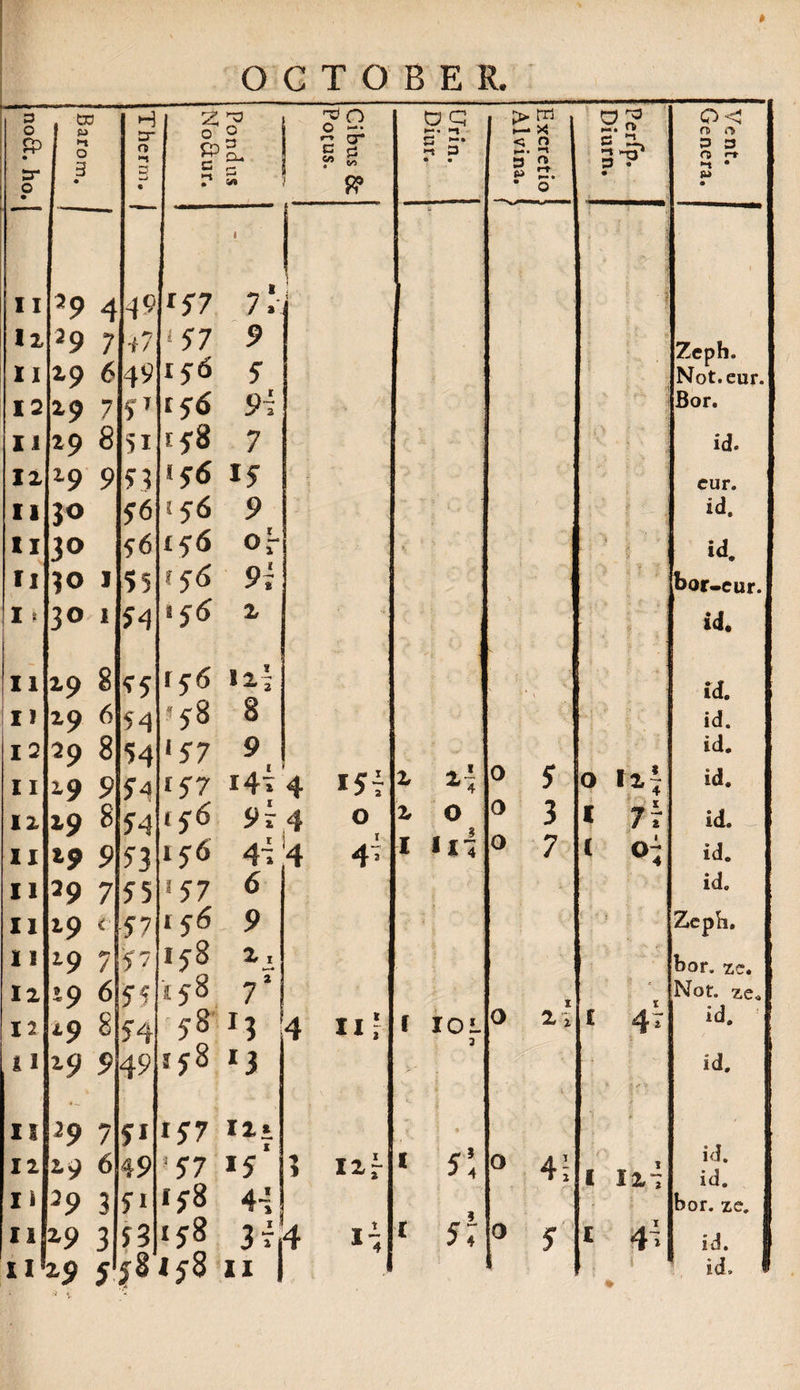 OCTOBER.
noct. ho. | Barom. | Therm. | Pondus Noctur. | Cibus & Potus. | Urin. Diur. | Excretio Alvina. | Persp. Diurn. | Vent. Genera.
11 | 29 4 | 49 | 157 7½
12 | 29 7 | 47 | 157 9 | Zeph.
11 | 29 6 | 49 | 156 5 | Not. eur.
12 | 29 7 | 51 | 156 9½ | Bor.
11 | 29 8 | 51 | 158 7 | id.
12 | 29 9 | 53 | 156 15 | eur.
11 | 30 | 56 | 156 9 | id.
11 | 30 | 56 | 156 0½ | id.
11 | 30 1 | 55 | 156 9½ | bor-eur.
11 | 30 1 | 54 | 156 2 | id.
11 | 29 8 | 55 | 156 12½ | id.
11 | 29 6 | 54 | 158 8 | id.
12 | 29 8 | 54 | 157 9 | id.
11 | 29 9 | 54 | 157 14½ | 4 15½ | 2 2¼ | 0 5 | 0 12¼ | id.
12 | 29 8 | 54 | 156 9½ | 4 0 | 2 0 | 0 3 | 1 7½ | id.
11 | 29 9 | 53 | 156 4½ | 4 4½ | 1 11¾ | 0 7 | 1 0¼ | id.
11 | 29 7 | 55 | 157 6 | id.
11 | 29 | 57 | 156 9 | Zeph.
11 | 29 7 | 57 | 158 2½ | bor. ze.
12 | 29 6 | 55 | 158 7 | Not. ze.
12 | 29 8 | 54 | 58 13 | 4 11½ | 1 10½ | 0 2½ | 1 4½ | id.
11 | 29 9 | 49 | 158 13 | id.
11 | 29 7 | 51 | 157 12½
12 | 29 6 | 49 | 157 15 | 3 12½ | 1 5¾ | 0 4½ | 1 12½ | id.
id.
11 | 29 3 | 51 | 158 4½ | bor. ze.
11 | 29 3 | 53 | 158 3½ | 4 1¼ | 1 5¾ | 0 5 | 1 4½ | id.
11 | 29 5 | 58 | 158 11 | id.